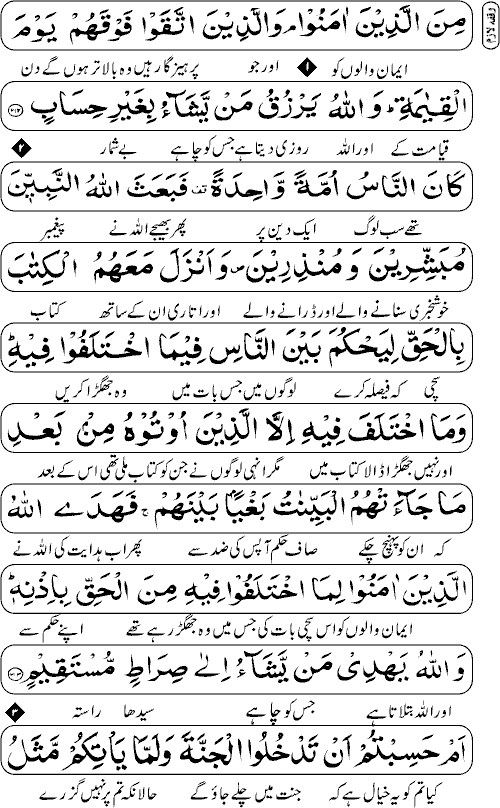 وقف لازم
مِنَ الَّذِيْنَ اٰمَنُوْا ۘ وَالَّذِيْنَ اتَّقَوْا فَوْقَهُمْ يَوْمَ
ایمان والوں کو ۱ اور جو پرہیزگار ہیں وہ بالاتر ہوں گے دن
الْقِيٰمَةِ ؕ وَاللّٰهُ يَرْزُقُ مَنْ يَّشَآءُ بِغَيْرِ حِسَابٍ ﴿۲۱۲﴾
قیامت کے اور اللہ روزی دیتا ہے جس کو چاہے بے شمار ۲
كَانَ النَّاسُ اُمَّةً وَّاحِدَةً ۟ فَبَعَثَ اللّٰهُ النَّبِيّٖنَ
تھے سب لوگ ایک دین پر پھر بھیجے اللہ نے پیغمبر
مُبَشِّرِيْنَ وَ مُنْذِرِيْنَ ۪ وَاَنْزَلَ مَعَهُمُ الْكِتٰبَ
خوشخبری سنانے والے اور ڈرانے والے اور اتاری ان کے ساتھ کتاب
بِالْحَقِّ لِيَحْكُمَ بَيْنَ النَّاسِ فِيْمَا اخْتَلَفُوْا فِيْهِ ؕ
سچی کہ فیصلہ کرے لوگوں میں جس بات میں وہ جھگڑا کریں
وَمَا اخْتَلَفَ فِيْهِ اِلَّا الَّذِيْنَ اُوْتُوْهُ مِنْ بَعْدِ
اور نہیں جھگڑا ڈالا کتاب میں مگر انہی لوگوں نے جن کو کتاب ملی تھی اس کے بعد
مَا جَآءَتْهُمُ الْبَيِّنٰتُ بَغْيًۢا بَيْنَهُمْ ۚ فَهَدَى اللّٰهُ
کہ ان کو پہنچ چکے صاف حکم آپس کی ضد سے پھر اب ہدایت کی اللہ نے
الَّذِيْنَ اٰمَنُوْا لِمَا اخْتَلَفُوْا فِيْهِ مِنَ الْحَقِّ بِاِذْنِهٖ ؕ
ایمان والوں کو اس سچی بات کی جس میں وہ جھگڑ رہے تھے اپنے حکم سے
وَاللّٰهُ يَهْدِيْ مَنْ يَّشَآءُ اِلٰى صِرَاطٍ مُّسْتَقِيْمٍ ﴿۲۱۳﴾
اور اللہ بتلاتا ہے جس کو چاہے سیدھا راستہ ۳
اَمْ حَسِبْتُمْ اَنْ تَدْخُلُوا الْجَنَّةَ وَلَمَّا يَاْتِكُمْ مَّثَلُ
کیا تم کو یہ خیال ہے کہ جنت میں چلے جاؤ گے حالانکہ تم پر نہیں گزرے